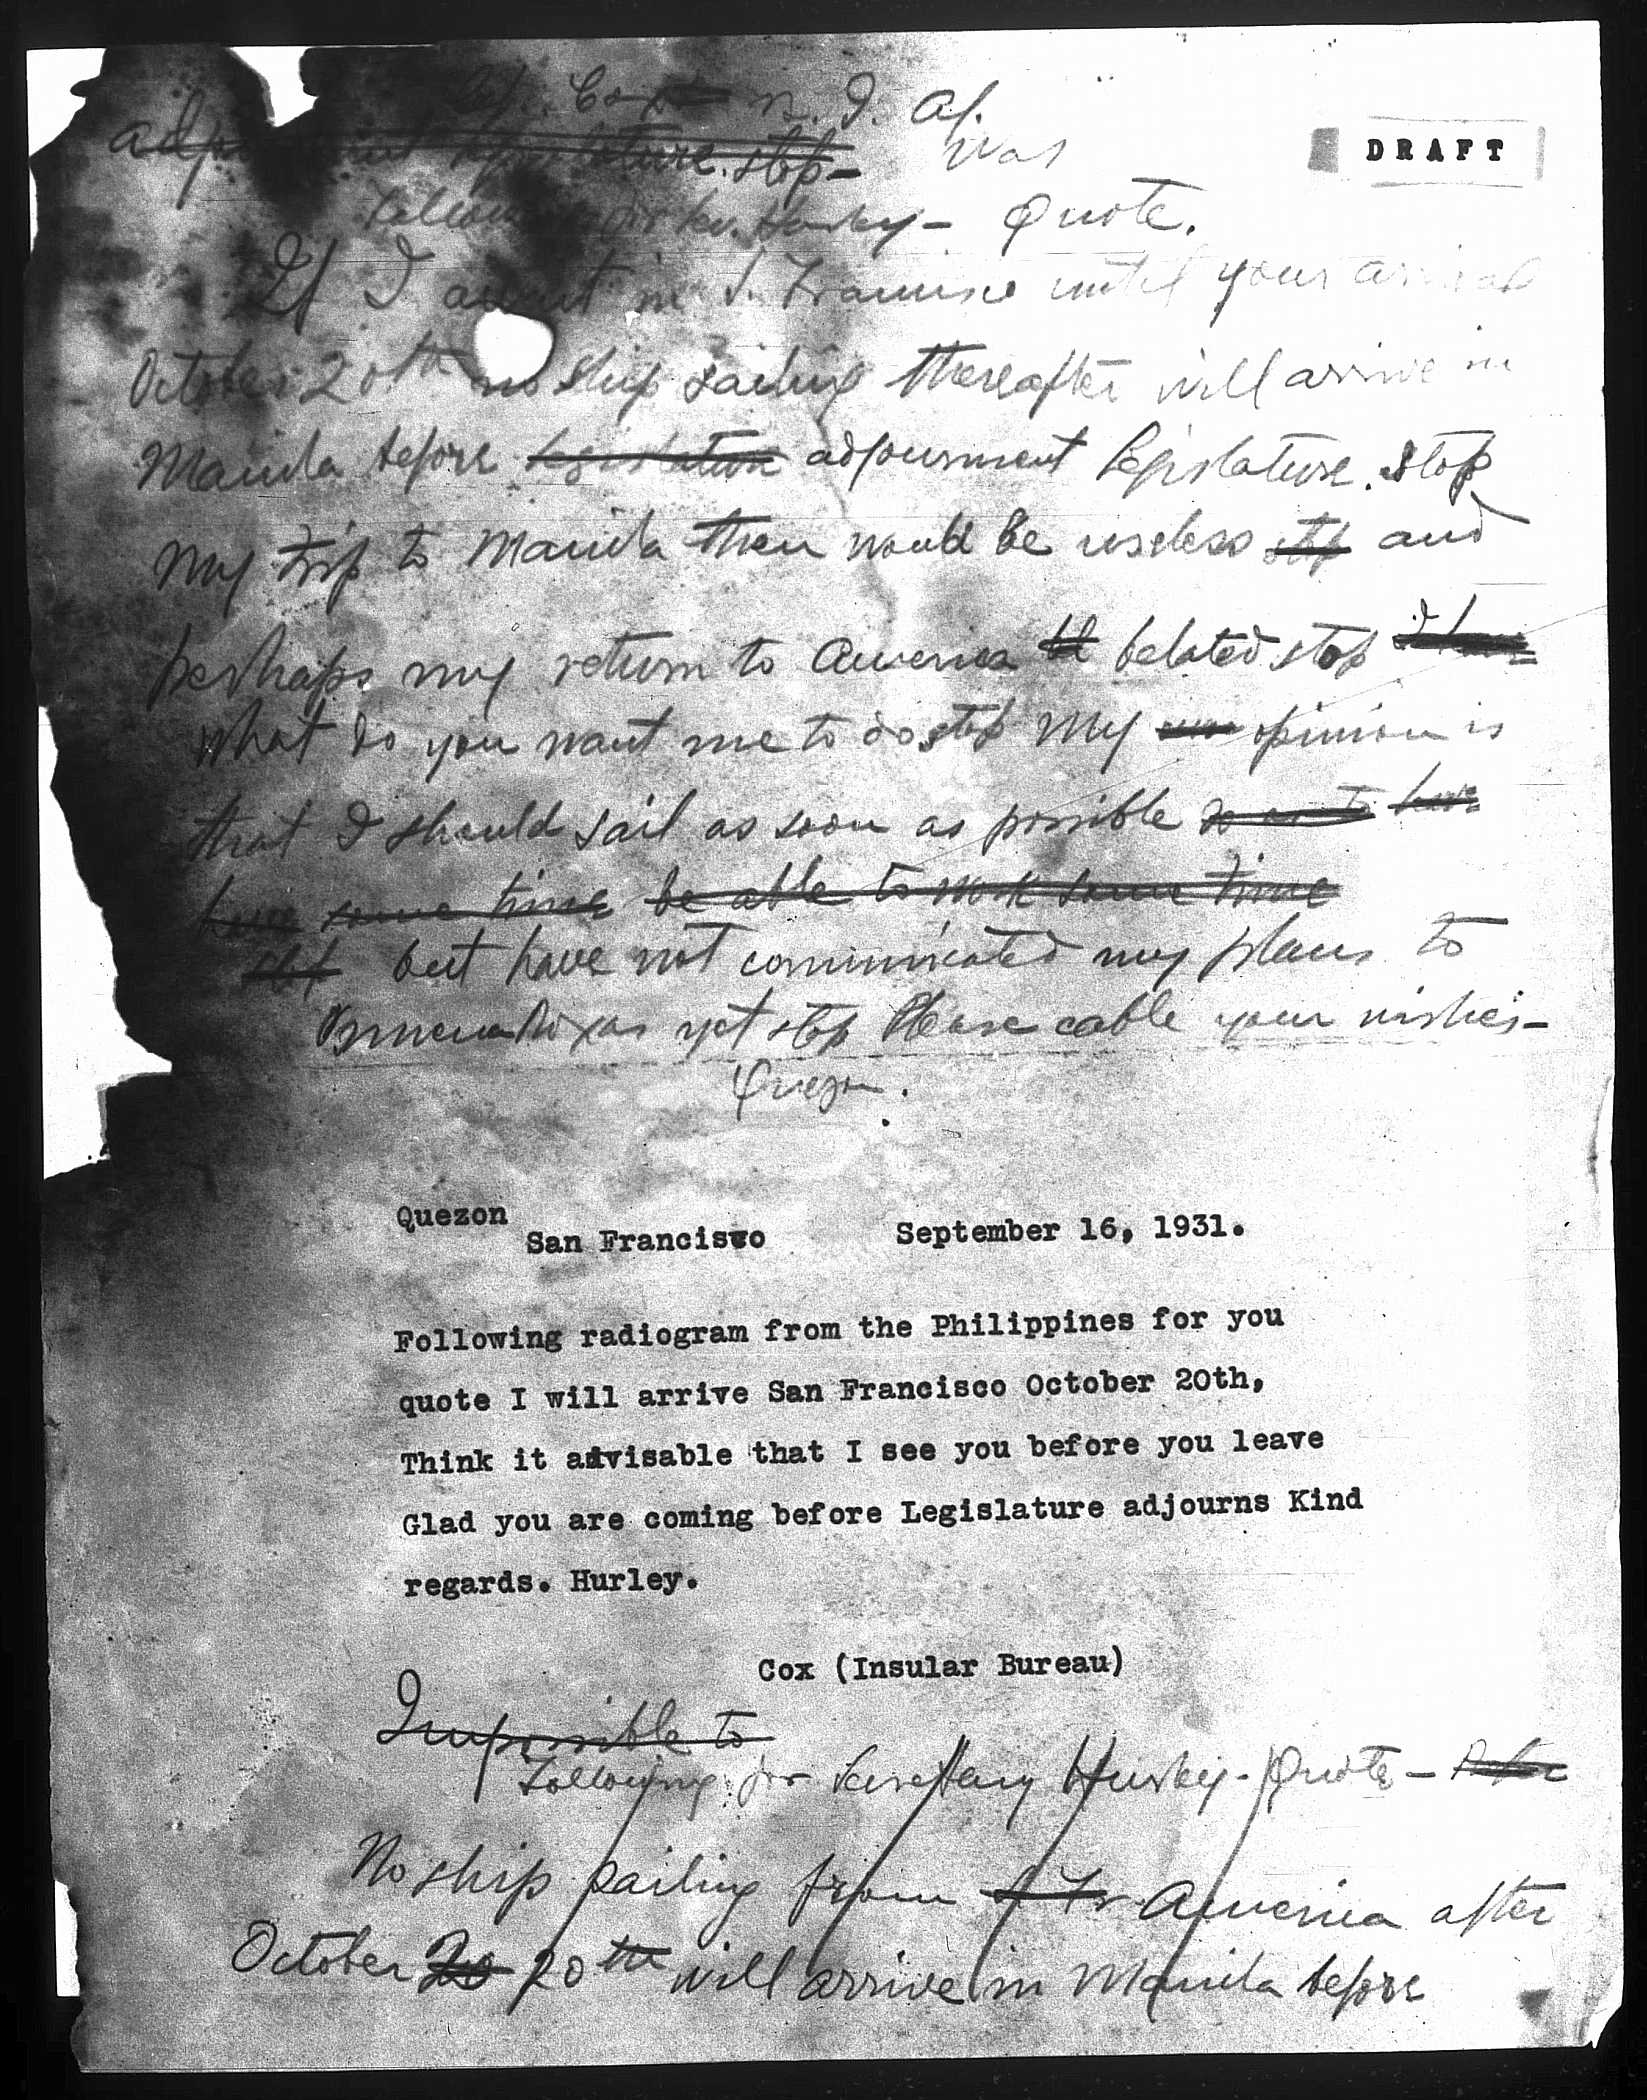 Cox
DRAFT
adjournment legislature. stop— was
Following for Sec. Hurley— Quote.
If I await in S. Francisco until your arrival
October 20th no ship sailing thereafter will arrive in
Manila before legislature adjournment Legislature. stop
My trip to Manila then would be useless stop and
perhaps my return to America belated stop
what do you want me to do stop My opinion is
that I should sail as soon as possible so as to have
have some time be able to work some time
stop but have not communicated my plans to
Osmena Roxas yet stop Please cable your wishes—
Quezon.
Quezon
San Francisco September 16, 1931.
Following radiogram from the Philippines for you
quote I will arrive San Francisco October 20th,
Think it advisable that I see you before you leave
Glad you are coming before Legislature adjourns Kind
regards. Hurley.
Cox (Insular Bureau)
Impossible to
Following for Secretary Hurley - Quote —
No ship sailing from S. Fr. America after
October 20 20th will arrive in Manila before